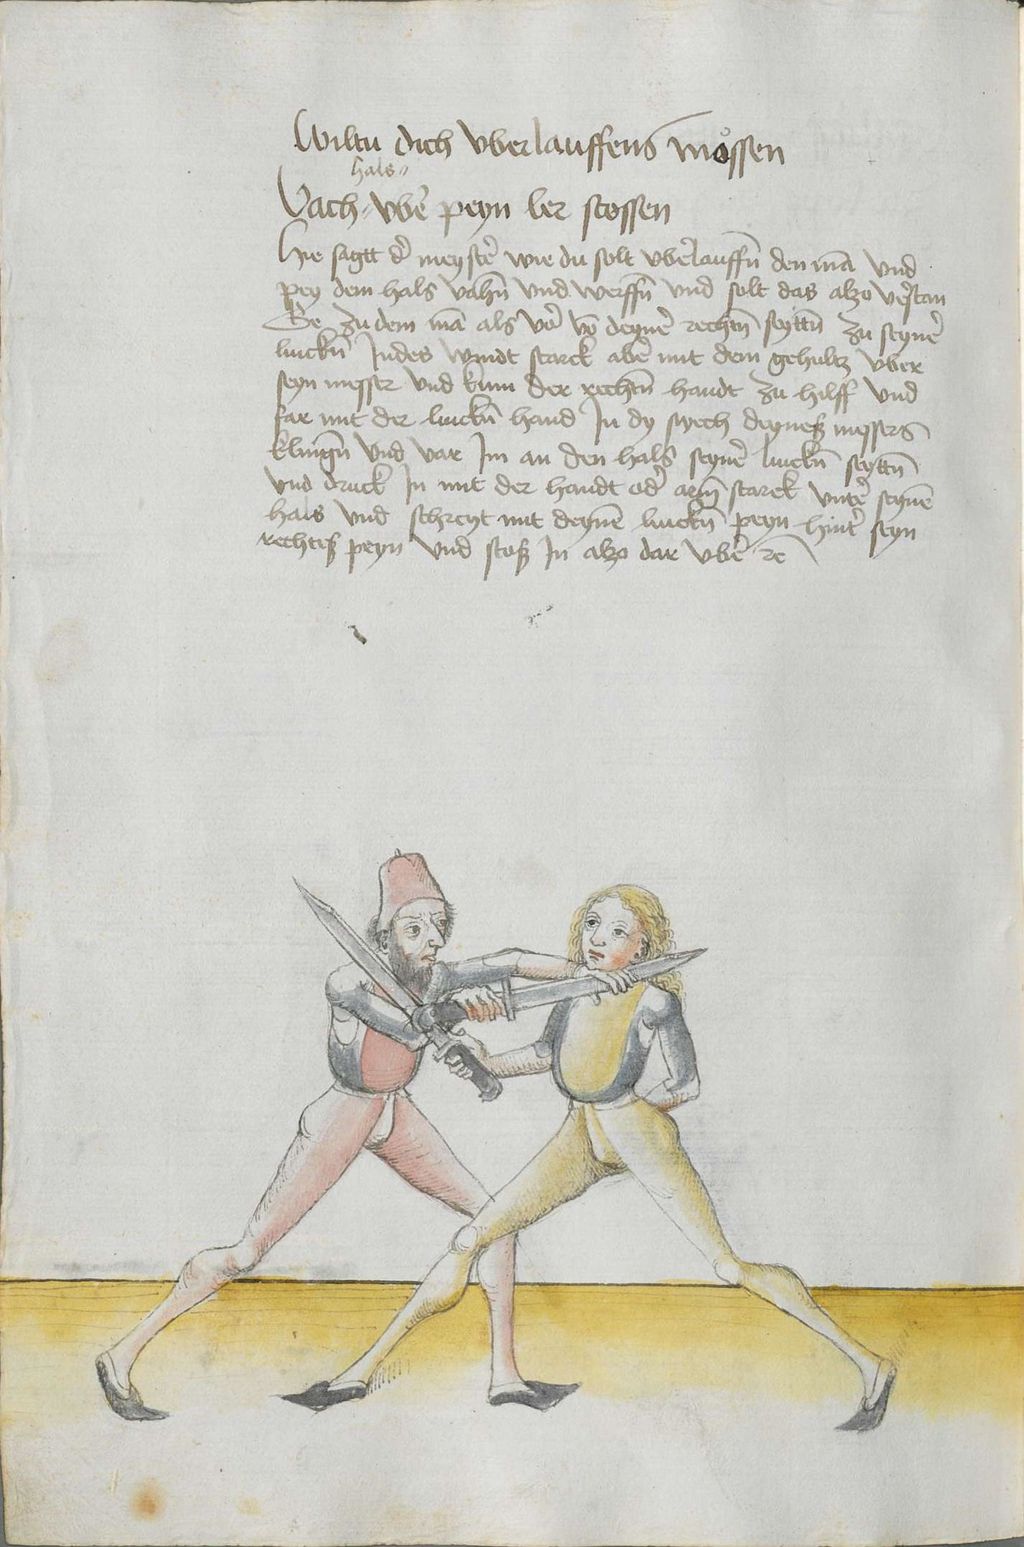 Wiltu dich vberlauffens moͤssen
hals
Vach vbẽ peyn ler stossen
Hie sagtt dˀ meystˀ wie du solt vbˀlauffñ den mã vnd
pey dem hals vahñ vnd werffñ vnd solt das alzo vˀstan
Ge zu dem mã als vor võ deynˀ rechtñ seyttñ zu seynˀ
linckñ Indes windt starck abˀ mit dem gehultz vber
seyn messer vnd kum der rechtñ handt zu hilff vnd
far mit der linckñ hand In dy sterch deyneß messers
klingñ vnd var Im an den hals seynˀ linckñ seyttñ
vnd druck In mit der handt odˀ arm starck vntˀ seynẽ
hals vnd schreyt mit deynẽ linckñ peyn hintˀ seyn
rechteß peyn vnd stoß In alzo dar vbˀ rc̃